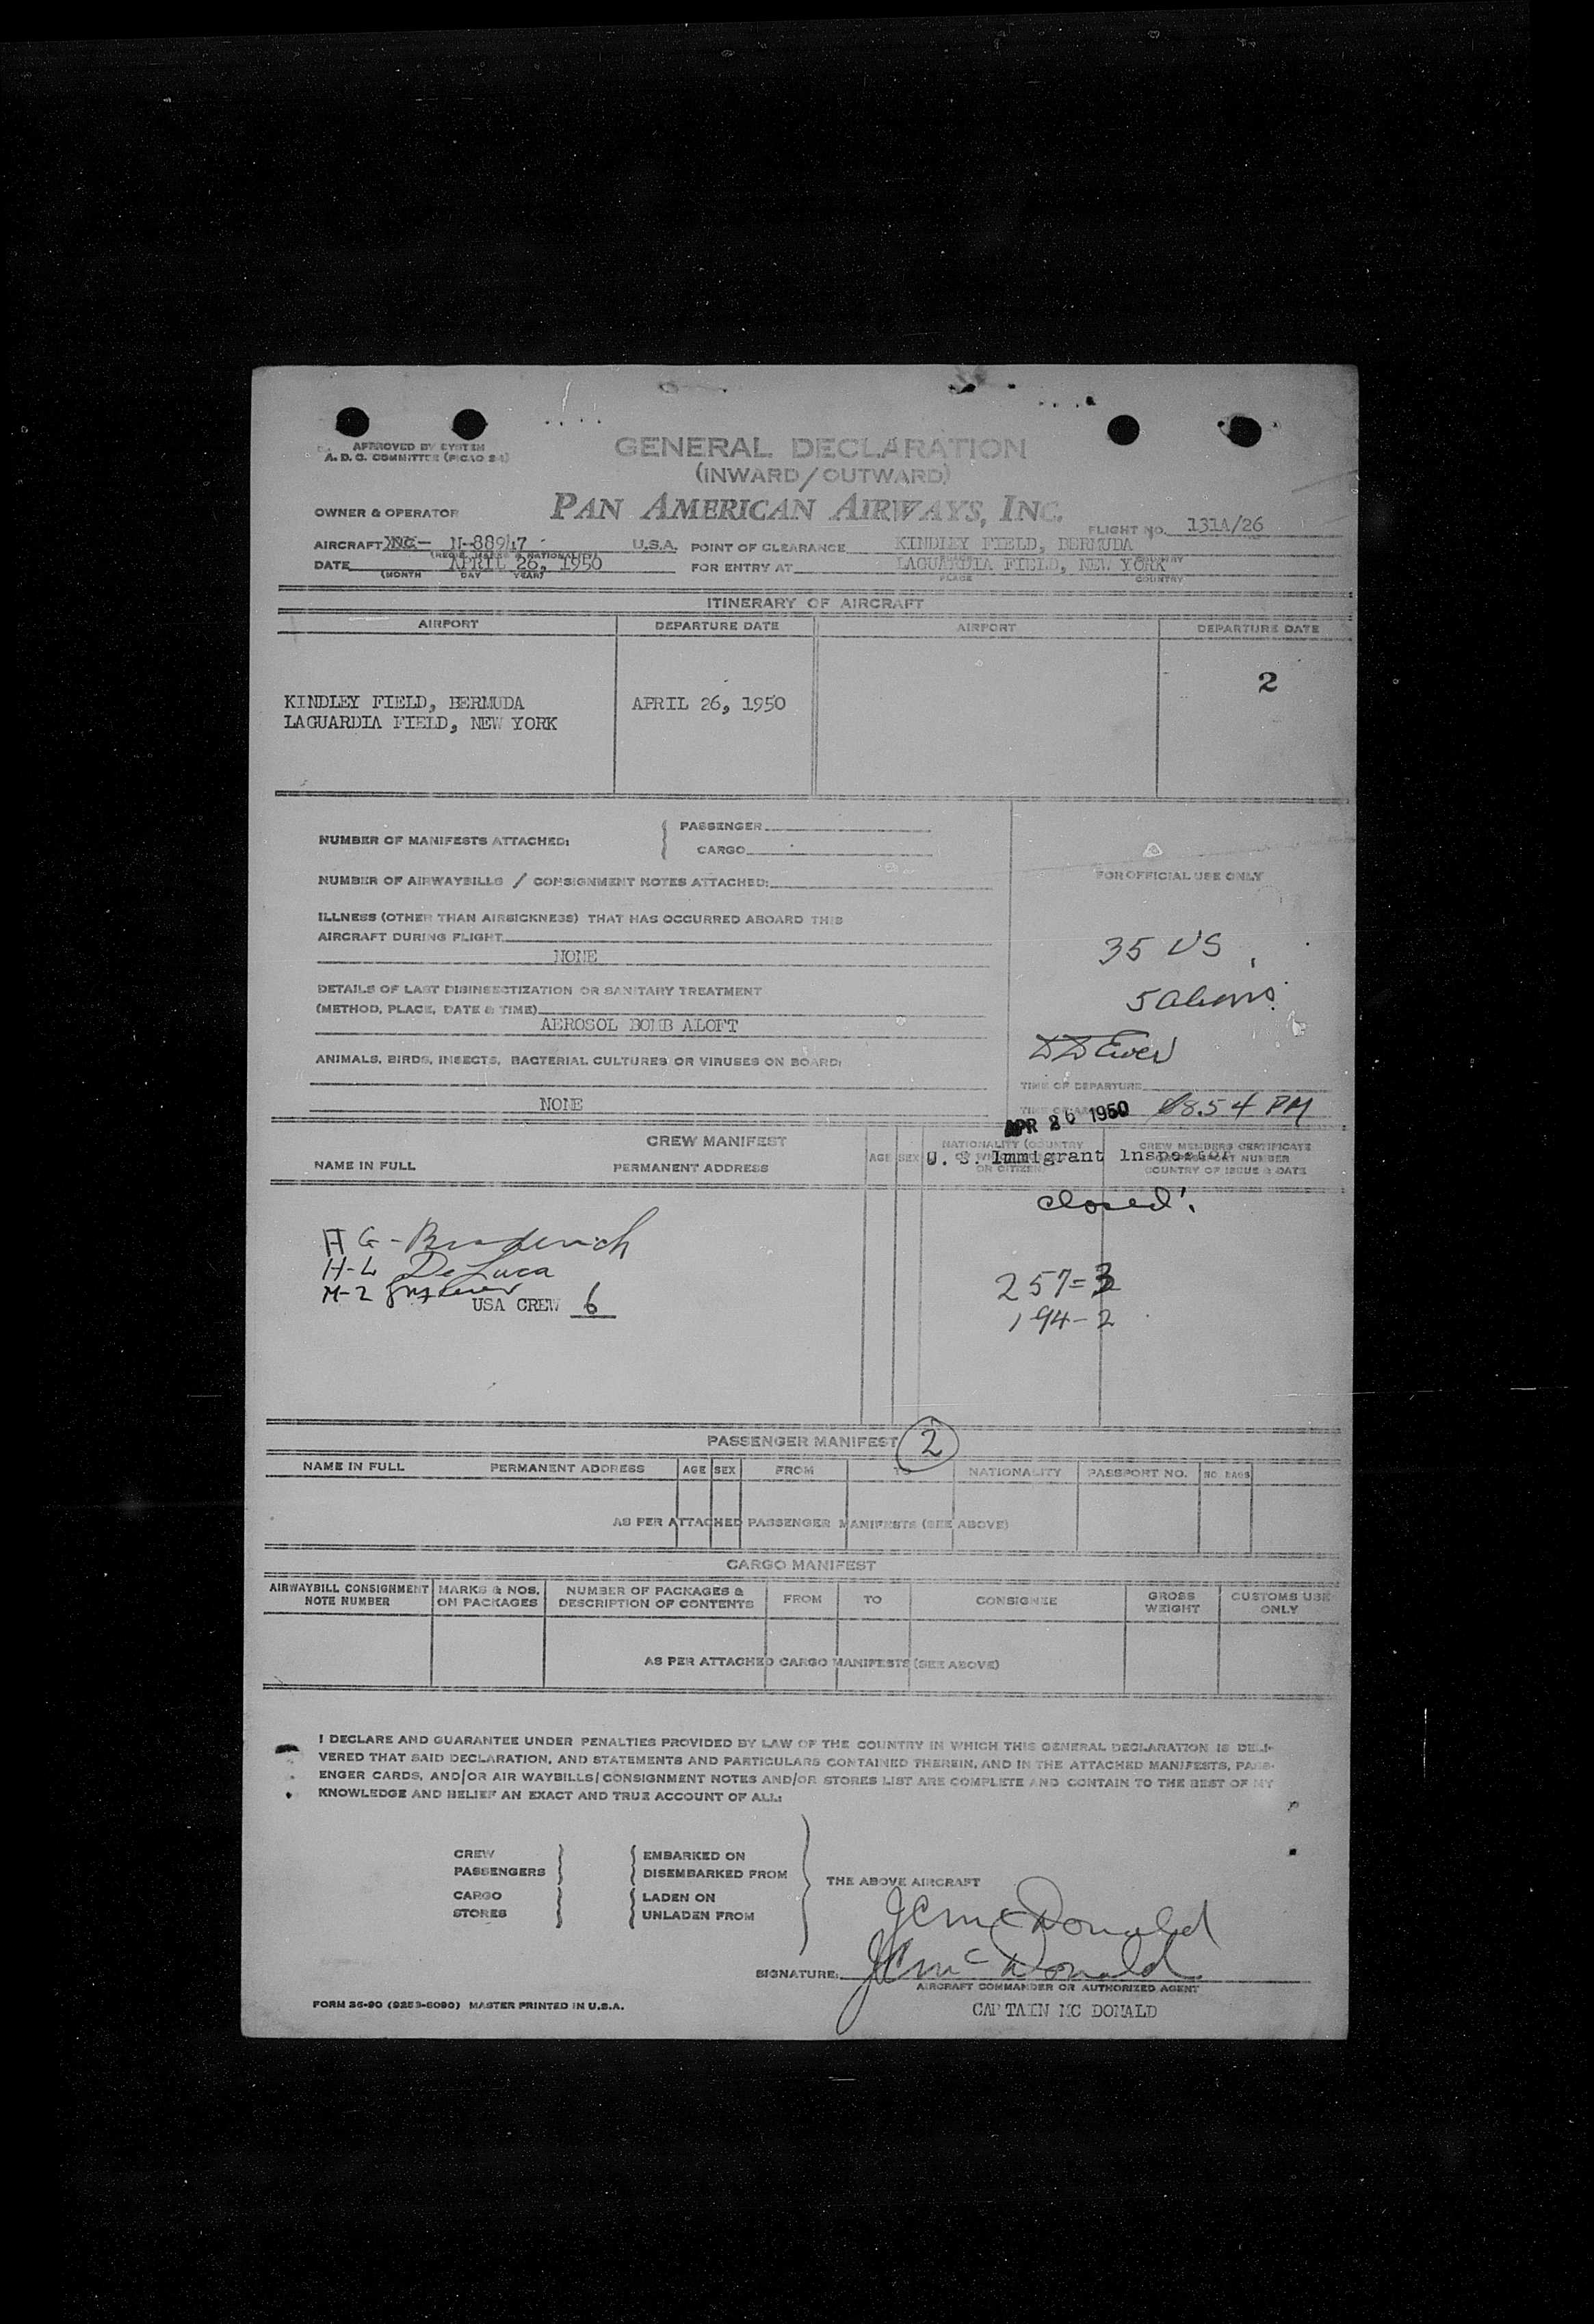 APPROVED BY SYSTEM
A. D. C. COMMITTEE (PICAO 24)
GENERAL DECLARATION
(INWARD/OUTWARD)
OWNER & OPERATOR PAN AMERICAN AIRWAYS, INC.
FLIGHT NO. 131A/26
AIRCRAFT NC- N-88947 U.S.A. POINT OF CLEARANCE KINDLEY FIELD, BERMUDA
(REGIS. MARKS & NATIONALITY)
DATE APRIL 26, 1950 FOR ENTRY AT LAGUARDIA FIELD, NEW YORK
(MONTH DAY YEAR) PLACE COUNTRY
ITINERARY OF AIRCRAFT
AIRPORT DEPARTURE DATE AIRPORT DEPARTURE DATE
2
KINDLEY FIELD, BERMUDA APRIL 26, 1950
LAGUARDIA FIELD, NEW YORK
NUMBER OF MANIFESTS ATTACHED: PASSENGER
CARGO
NUMBER OF AIRWAYBILLS / CONSIGNMENT NOTES ATTACHED:
FOR OFFICIAL USE ONLY
ILLNESS (OTHER THAN AIRSICKNESS) THAT HAS OCCURRED ABOARD THIS
AIRCRAFT DURING FLIGHT
NONE
35 US
DETAILS OF LAST DISINSECTIZATION OR SANITARY TREATMENT
(METHOD, PLACE, DATE & TIME)
AEROSOL BOMB ALOFT
5 aliens
ANIMALS, BIRDS, INSECTS, BACTERIAL CULTURES OR VIRUSES ON BOARD:
NONE
TIME OF DEPARTURE
APR 26 1950 8.54 PM
CREW MANIFEST
NAME IN FULL PERMANENT ADDRESS AGE SEX NATIONALITY (COUNTRY CREW MEMBERS CERTIFICATE
U. S. Immigrant Inspector NUMBER
OR CITIZEN COUNTRY OF ISSUE & DATE
closed
A G - Broderick
H-L De Luca
M-2
USA CREW 6
257=3
194-2
PASSENGER MANIFEST 2
NAME IN FULL PERMANENT ADDRESS AGE SEX FROM TO NATIONALITY PASSPORT NO. NO. BAGS
AS PER ATTACHED PASSENGER MANIFESTS (SEE ABOVE)
CARGO MANIFEST
AIRWAYBILL CONSIGNMENT NOTE NUMBER MARKS & NOS. ON PACKAGES NUMBER OF PACKAGES & DESCRIPTION OF CONTENTS FROM TO CONSIGNEE GROSS WEIGHT CUSTOMS USE ONLY
AS PER ATTACHED CARGO MANIFESTS (SEE ABOVE)
I DECLARE AND GUARANTEE UNDER PENALTIES PROVIDED BY LAW OF THE COUNTRY IN WHICH THIS GENERAL DECLARATION IS DELI-
VERED THAT SAID DECLARATION, AND STATEMENTS AND PARTICULARS CONTAINED THEREIN, AND IN THE ATTACHED MANIFESTS, PASS-
ENGER CARDS, AND/OR AIR WAYBILLS/CONSIGNMENT NOTES AND/OR STORES LIST ARE COMPLETE AND CONTAIN TO THE BEST OF MY
KNOWLEDGE AND BELIEF AN EXACT AND TRUE ACCOUNT OF ALL:
CREW EMBARKED ON
PASSENGERS DISEMBARKED FROM
THE ABOVE AIRCRAFT
CARGO LADEN ON
STORES UNLADEN FROM
JC McDonald
SIGNATURE: JC McDonald
AIRCRAFT COMMANDER OR AUTHORIZED AGENT
FORM 36-90 (9253-6090) MASTER PRINTED IN U.S.A.
CAPTAIN MC DONALD